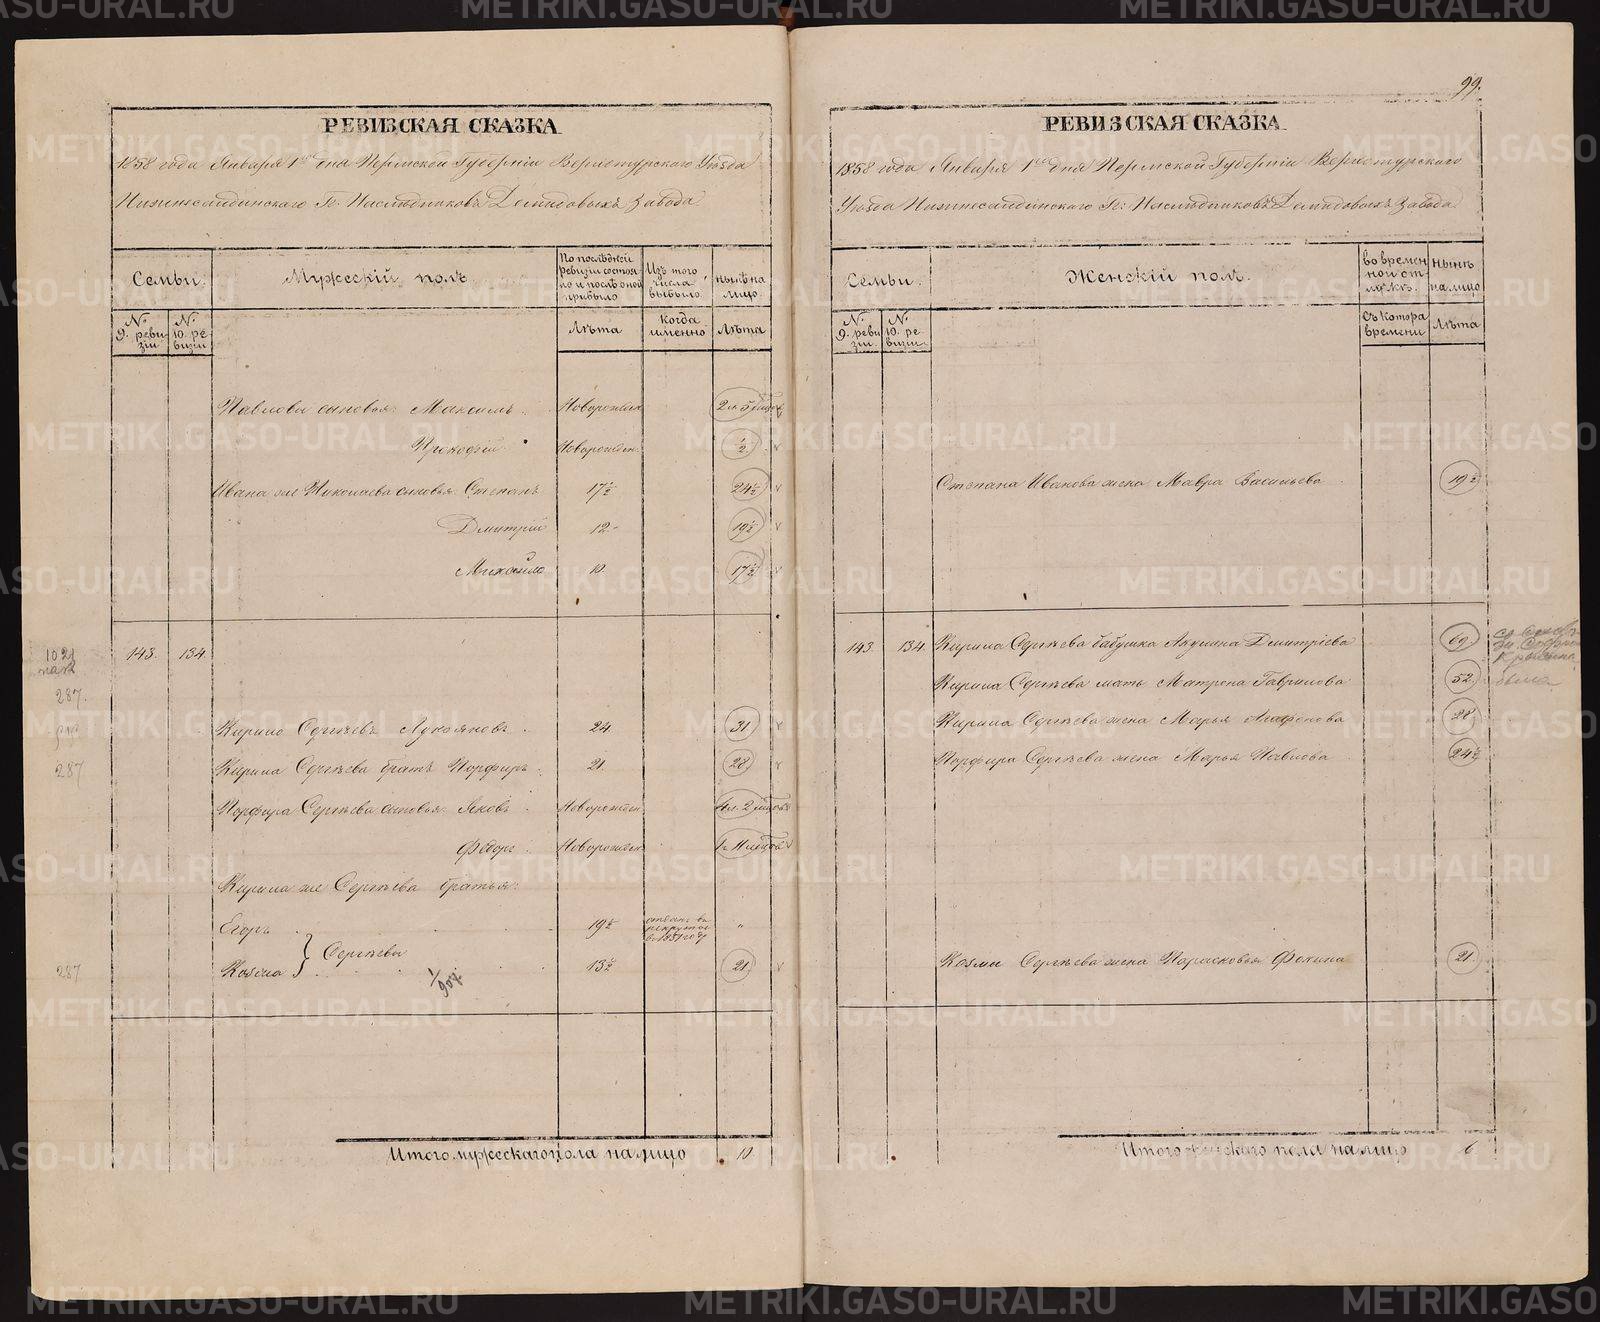 99.
РЕВИЗСКАЯ СКАЗКА
1858 года Января 1го дня Пермской Губернiи Верхотурского Уѣзда
Нижнесалдинскаго Гг: Наслѣдниковъ Демидовыхъ Завода
Семьи.
Мужескiй полъ
По послѣдней ревизiи состояло и послѣ оной прибыло
Изъ того числа выбыло
нынѣ на лицо
№ 9. ревизiи
№ 10. ревизiи
Лѣта
когда именно
Лѣта
Павлова сыновья: Максимъ Новорожден 2 л 5 мцовъ
Прокофiй Новорожден ½
Ивана же Николаева сыновья Степанъ 17½ 24½
Дмитрiй 12 19½
Михайло 10. 17½
1021
143. 134.
287.
Кирило Сергѣевъ Лукояновъ 24 31
287 Кирила Сергѣева братъ Порфиръ 21. 28
Порфира Сергѣева сыновья Яковъ Новорожден 4 л. 2 мцовъ
Федоръ Новорожден 1 г. 11 мцовъ
Кирила же Сергѣева братья:
Егоръ 19½ отданъ въ рекруты въ 1851 году "
287 Козма } Сергѣева 13½ 21
Итого мужескаго пола на лицо 10.
РЕВИЗСКАЯ СКАЗКА
1858 года Января 1го дня Пермской Губернiи Верхотурскаго
Уѣзда Нижнесалдинскаго Гг: Наслѣдниковъ Демидовыхъ Завода
Семьи.
Женскiй полъ.
во временной отлучкѣ.
нынѣ на лицо
№ 9. ревизiи.
№ 10. ревизiи.
Съ котора времени
Лѣта
Степана Иванова жена Мавра Васильева 19½
143. 134. Кирила Сергѣева бабушка Акулина Дмитрiева 69
Кирила Сергѣева мать Матрона Гаврилова 52
Кирила Сергѣева жена Марья Агафонова 28
Порфира Сергѣева жена Марья Павлова 24½
Козмы Сергѣева жена Парасковья Фокина 21.
Итого женскаго пола на лицо 6
METRIKI.GASO-URAL.RU